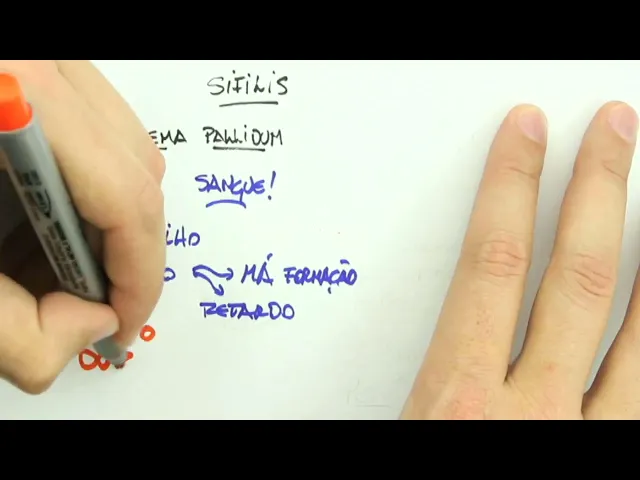 SÍFILIS
EMA PALLIDUM
SANGUE!
ILHO
O MÁ FORMAÇÃO
RETARDO